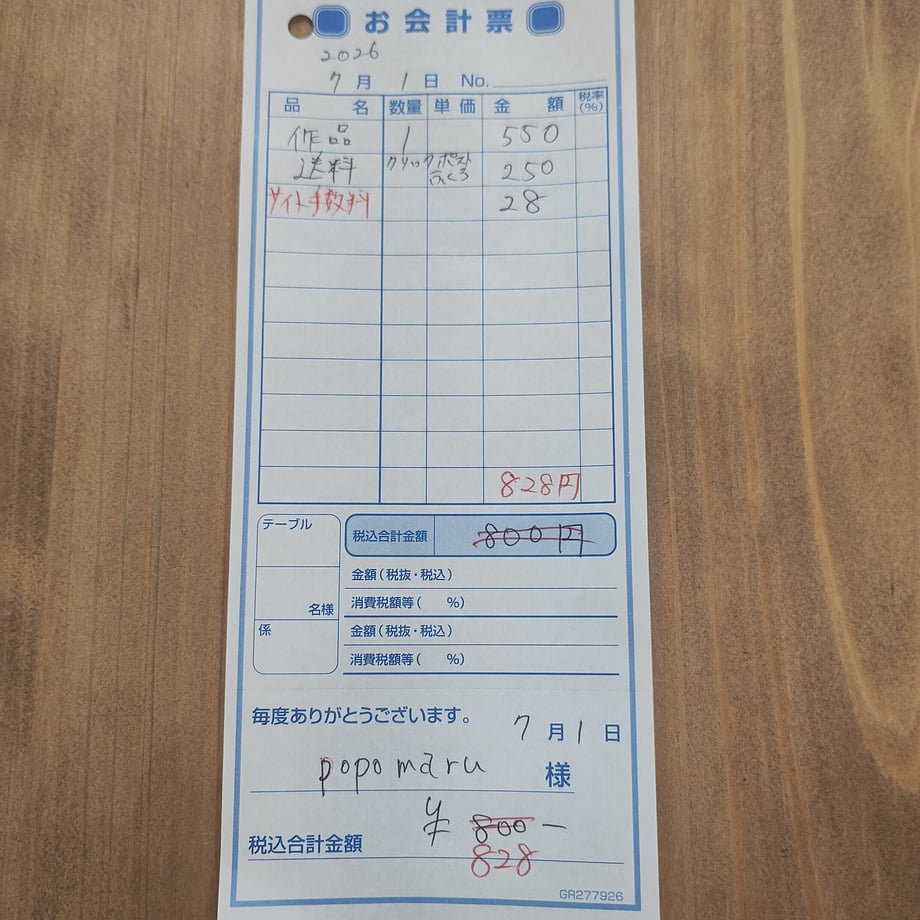 お会計票
2026
7月 1日 No.
品名 数量 単価 金額 税率(%)
作品 1 550
送料 クリックポスト ふくろ 250
サイト手数料 28
828円
テーブル
税込合計金額 800円
金額(税抜・税込)
名様 消費税額等( %)
係 金額(税抜・税込)
消費税額等( %)
毎度ありがとうございます。 7月1日
popomaru 様
税込合計金額 ¥ 800 —
828
GR277926